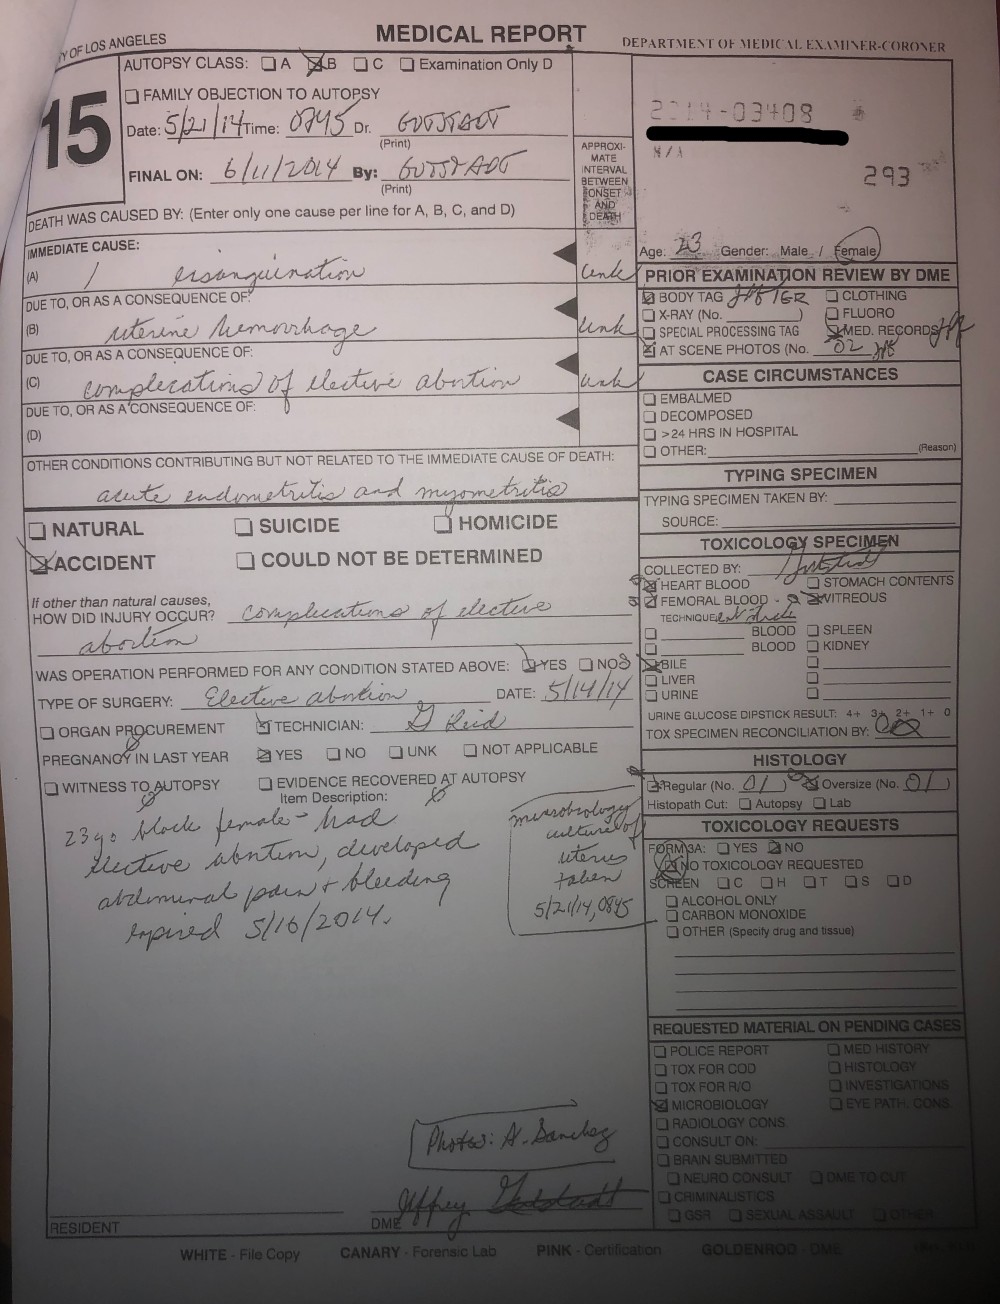 Y OF LOS ANGELES
MEDICAL REPORT
DEPARTMENT OF MEDICAL EXAMINER-CORONER
15
AUTOPSY CLASS: A B C Examination Only D
FAMILY OBJECTION TO AUTOPSY
Date: 5/21/14 Time: 0845 Dr. GUTSTADT
(Print)
FINAL ON: 6/11/2014 By: GUTSTADT
(Print)
APPROXI-
MATE
INTERVAL
BETWEEN
ONSET
AND
DEATH
2014-03408
N/A
293
Age: 23 Gender: Male / Female
DEATH WAS CAUSED BY: (Enter only one cause per line for A, B, C, and D)
IMMEDIATE CAUSE:
(A) exsanguination unk
DUE TO, OR AS A CONSEQUENCE OF:
(B) uterine hemorrhage unk
DUE TO, OR AS A CONSEQUENCE OF:
(C) complications of elective abortion unk
DUE TO, OR AS A CONSEQUENCE OF:
(D)
OTHER CONDITIONS CONTRIBUTING BUT NOT RELATED TO THE IMMEDIATE CAUSE OF DEATH:
acute endometritis and myometritis
NATURAL SUICIDE HOMICIDE
ACCIDENT COULD NOT BE DETERMINED
If other than natural causes,
HOW DID INJURY OCCUR? complications of elective
abortion
WAS OPERATION PERFORMED FOR ANY CONDITION STATED ABOVE: YES NO
TYPE OF SURGERY: Elective abortion DATE: 5/14/14
ORGAN PROCUREMENT TECHNICIAN: G Reid
PREGNANCY IN LAST YEAR YES NO UNK NOT APPLICABLE
WITNESS TO AUTOPSY EVIDENCE RECOVERED AT AUTOPSY
Item Description:
23 yo black female - had
elective abortion, developed
abdominal pain + bleeding
expired 5/16/2014.
microbiology
culture of
uterus
taken
5/21/14, 0845
Photos: A. Sanchez
RESIDENT
DME Jeffrey Gutstadt
PRIOR EXAMINATION REVIEW BY DME
BODY TAG CLOTHING
X-RAY (No. ) FLUORO
SPECIAL PROCESSING TAG MED. RECORDS
AT SCENE PHOTOS (No. 02
CASE CIRCUMSTANCES
EMBALMED
DECOMPOSED
>24 HRS IN HOSPITAL
OTHER: (Reason)
TYPING SPECIMEN
TYPING SPECIMEN TAKEN BY:
SOURCE:
TOXICOLOGY SPECIMEN
COLLECTED BY: Gutstadt
HEART BLOOD STOMACH CONTENTS
FEMORAL BLOOD VITREOUS
TECHNIQUE:
BLOOD SPLEEN
BLOOD KIDNEY
BILE
LIVER
URINE
URINE GLUCOSE DIPSTICK RESULT: 4+ 3+ 2+ 1+ 0
TOX SPECIMEN RECONCILIATION BY:
HISTOLOGY
Regular (No. 01 ) Oversize (No. 01 )
Histopath Cut: Autopsy Lab
TOXICOLOGY REQUESTS
FORM 3A: YES NO
NO TOXICOLOGY REQUESTED
SCREEN C H T S D
ALCOHOL ONLY
CARBON MONOXIDE
OTHER (Specify drug and tissue)
REQUESTED MATERIAL ON PENDING CASES
POLICE REPORT MED HISTORY
TOX FOR COD HISTOLOGY
TOX FOR R/O INVESTIGATIONS
MICROBIOLOGY EYE PATH. CONS.
RADIOLOGY CONS.
CONSULT ON:
BRAIN SUBMITTED
NEURO CONSULT DME TO CUT
CRIMINALISTICS
GSR SEXUAL ASSAULT OTHER
WHITE - File Copy CANARY - Forensic Lab PINK - Certification GOLDENROD - DME